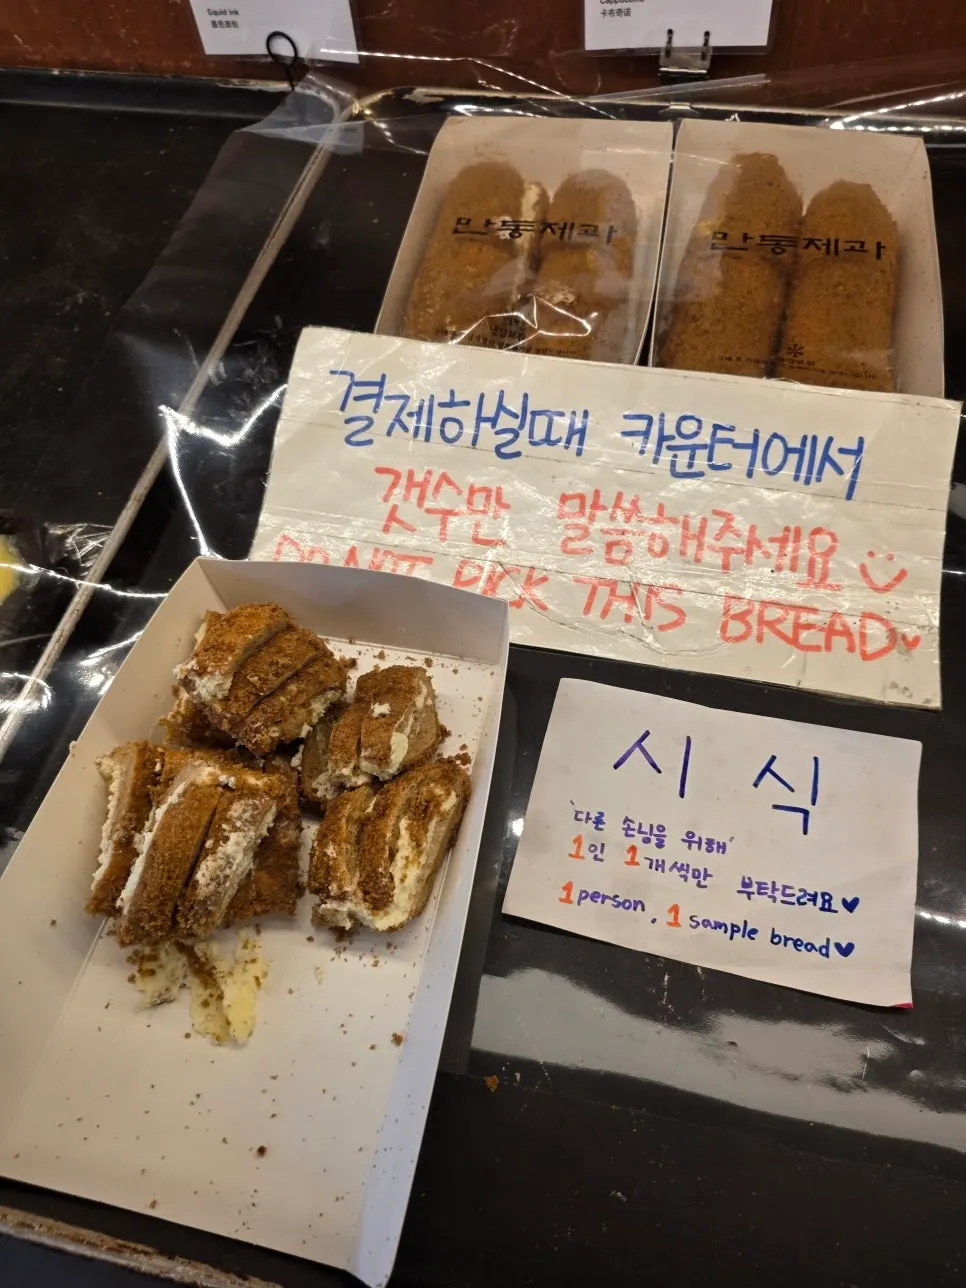 Squid ink
墨鱼面包
Cappuccino
卡布奇诺
만동제과
만동제과
결제하실때 카운터에서
갯수만 말씀해주세요
DO NOT PICK THIS BREAD
시식
'다른 손님을 위해'
1인 1개씩만 부탁드려요
1 person, 1 sample bread